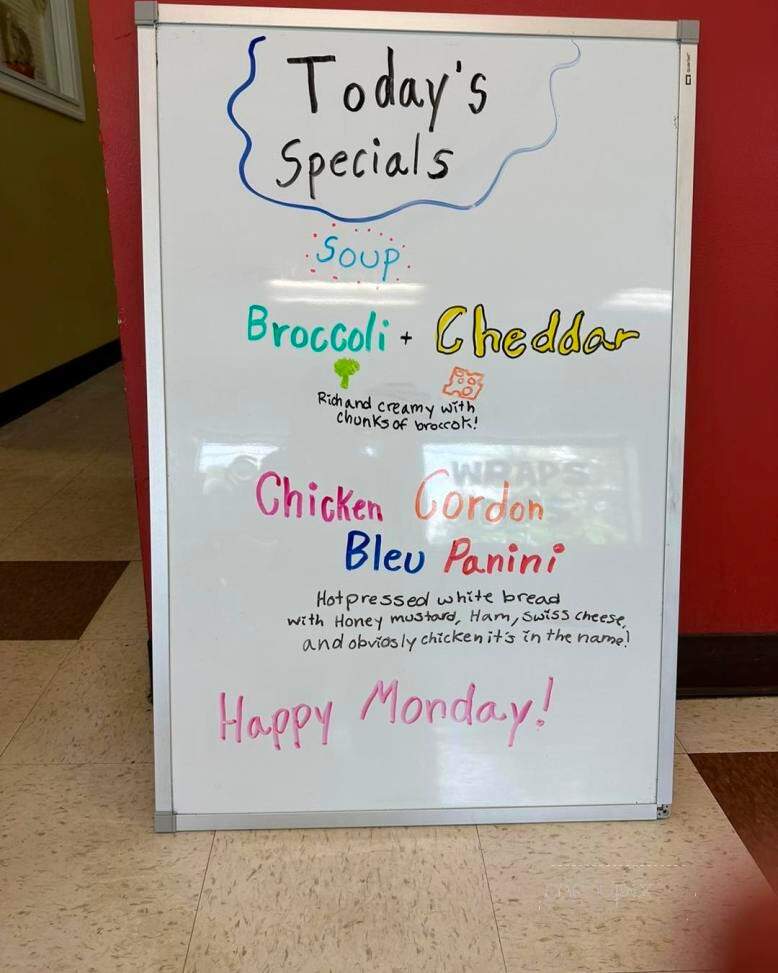 Today's
Specials
Soup
Broccoli + Cheddar
Rich and creamy with
chunks of broccoli!
Chicken Cordon
Bleu Panini
Hot pressed white bread
with Honey mustard, Ham, Swiss cheese,
and obviosly chicken it's in the name!
Happy Monday!
WRAPS